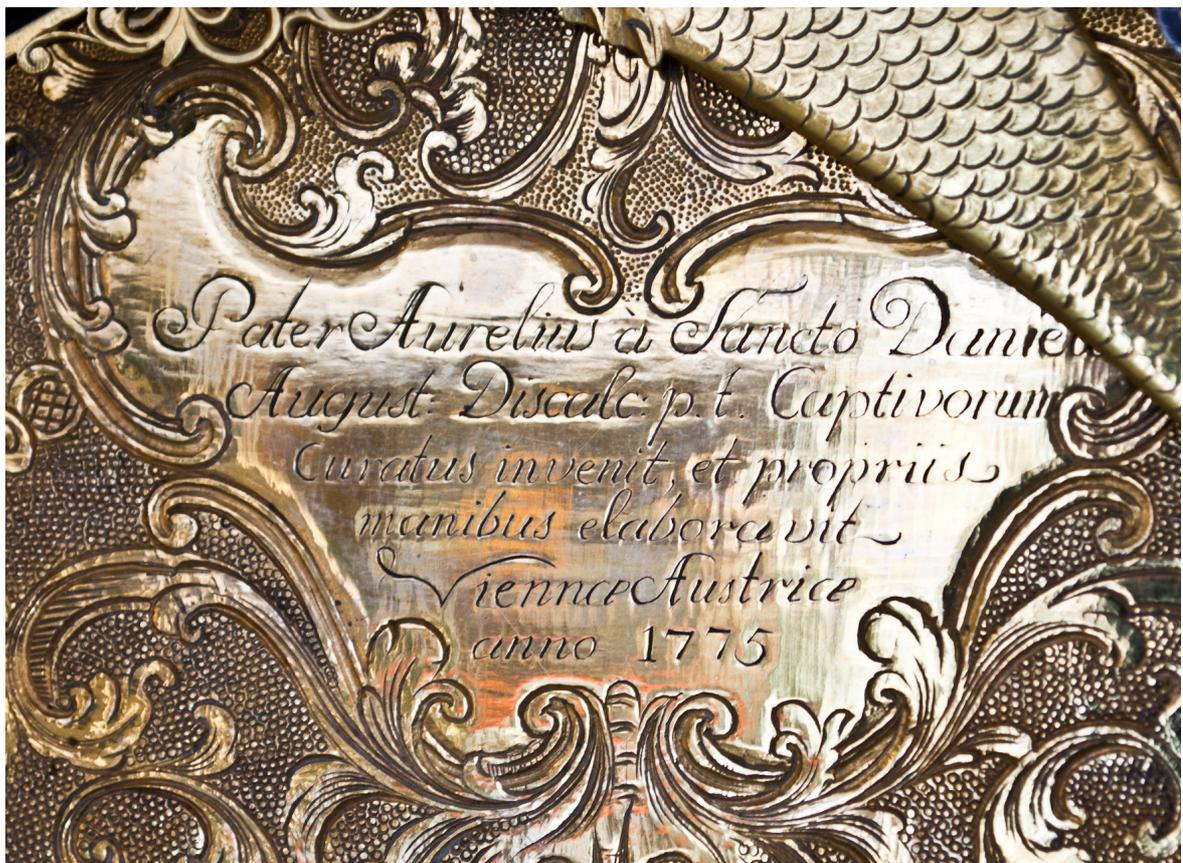 Pater Aurelius à Sancto Daniele
August: Discalc: p.t. Captivorum
Curatus invenit, et propriis
manibus elaboravit
Viennæ Austriæ
anno 1775